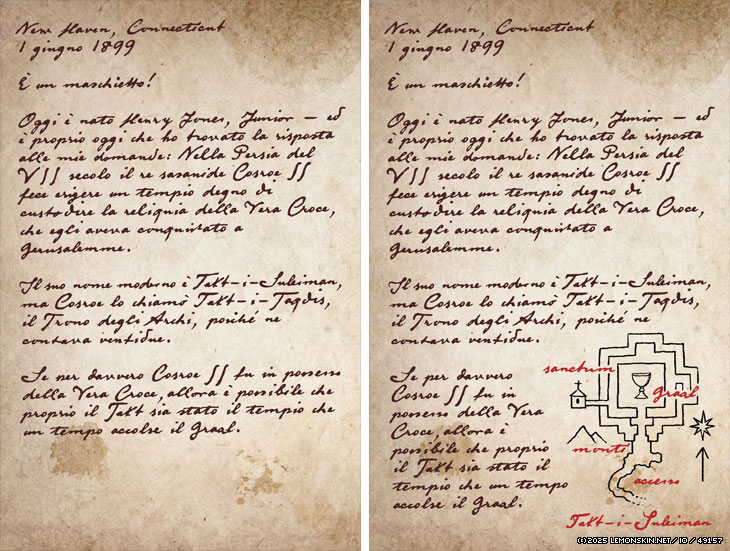 New Haven, Connecticut
1 giugno 1899
È un maschietto!
Oggi è nato Henry Jones, Junior – ed
è proprio oggi che ho trovato la risposta
alle mie domande: Nella Persia del
VII secolo il re sasanide Cosroe II
fece erigere un tempio degno di
custodire la reliquia della Vera Croce,
che egli aveva conquistato a
Gerusalemme.
Il suo nome moderno è Takt-i-Suleiman,
ma Cosroe lo chiamò Takt-i-Taqdis,
il Trono degli Archi, poiché ne
contava ventidue.
Se per davvero Cosroe II fu in possesso
della Vera Croce, allora è possibile che
proprio il Takt sia stato il tempio che
un tempo accolse il Graal.
New Haven, Connecticut
1 giugno 1899
È un maschietto!
Oggi è nato Henry Jones, Junior – ed
è proprio oggi che ho trovato la risposta
alle mie domande: Nella Persia del
VII secolo il re sasanide Cosroe II
fece erigere un tempio degno di
custodire la reliquia della Vera Croce,
che egli aveva conquistato a
Gerusalemme.
Il suo nome moderno è Takt-i-Suleiman,
ma Cosroe lo chiamò Takt-i-Taqdis,
il Trono degli Archi, poiché ne
contava ventidue.
Se per davvero
Cosroe II fu in
possesso della Vera
Croce, allora è
possibile che proprio
il Takt sia stato il
tempio che un tempo
accolse il Graal.
sanctum
Graal
monti
accesso
Takt-i-Suleiman
(C) 2025 LEMONSKIN.NET / IO / 49157